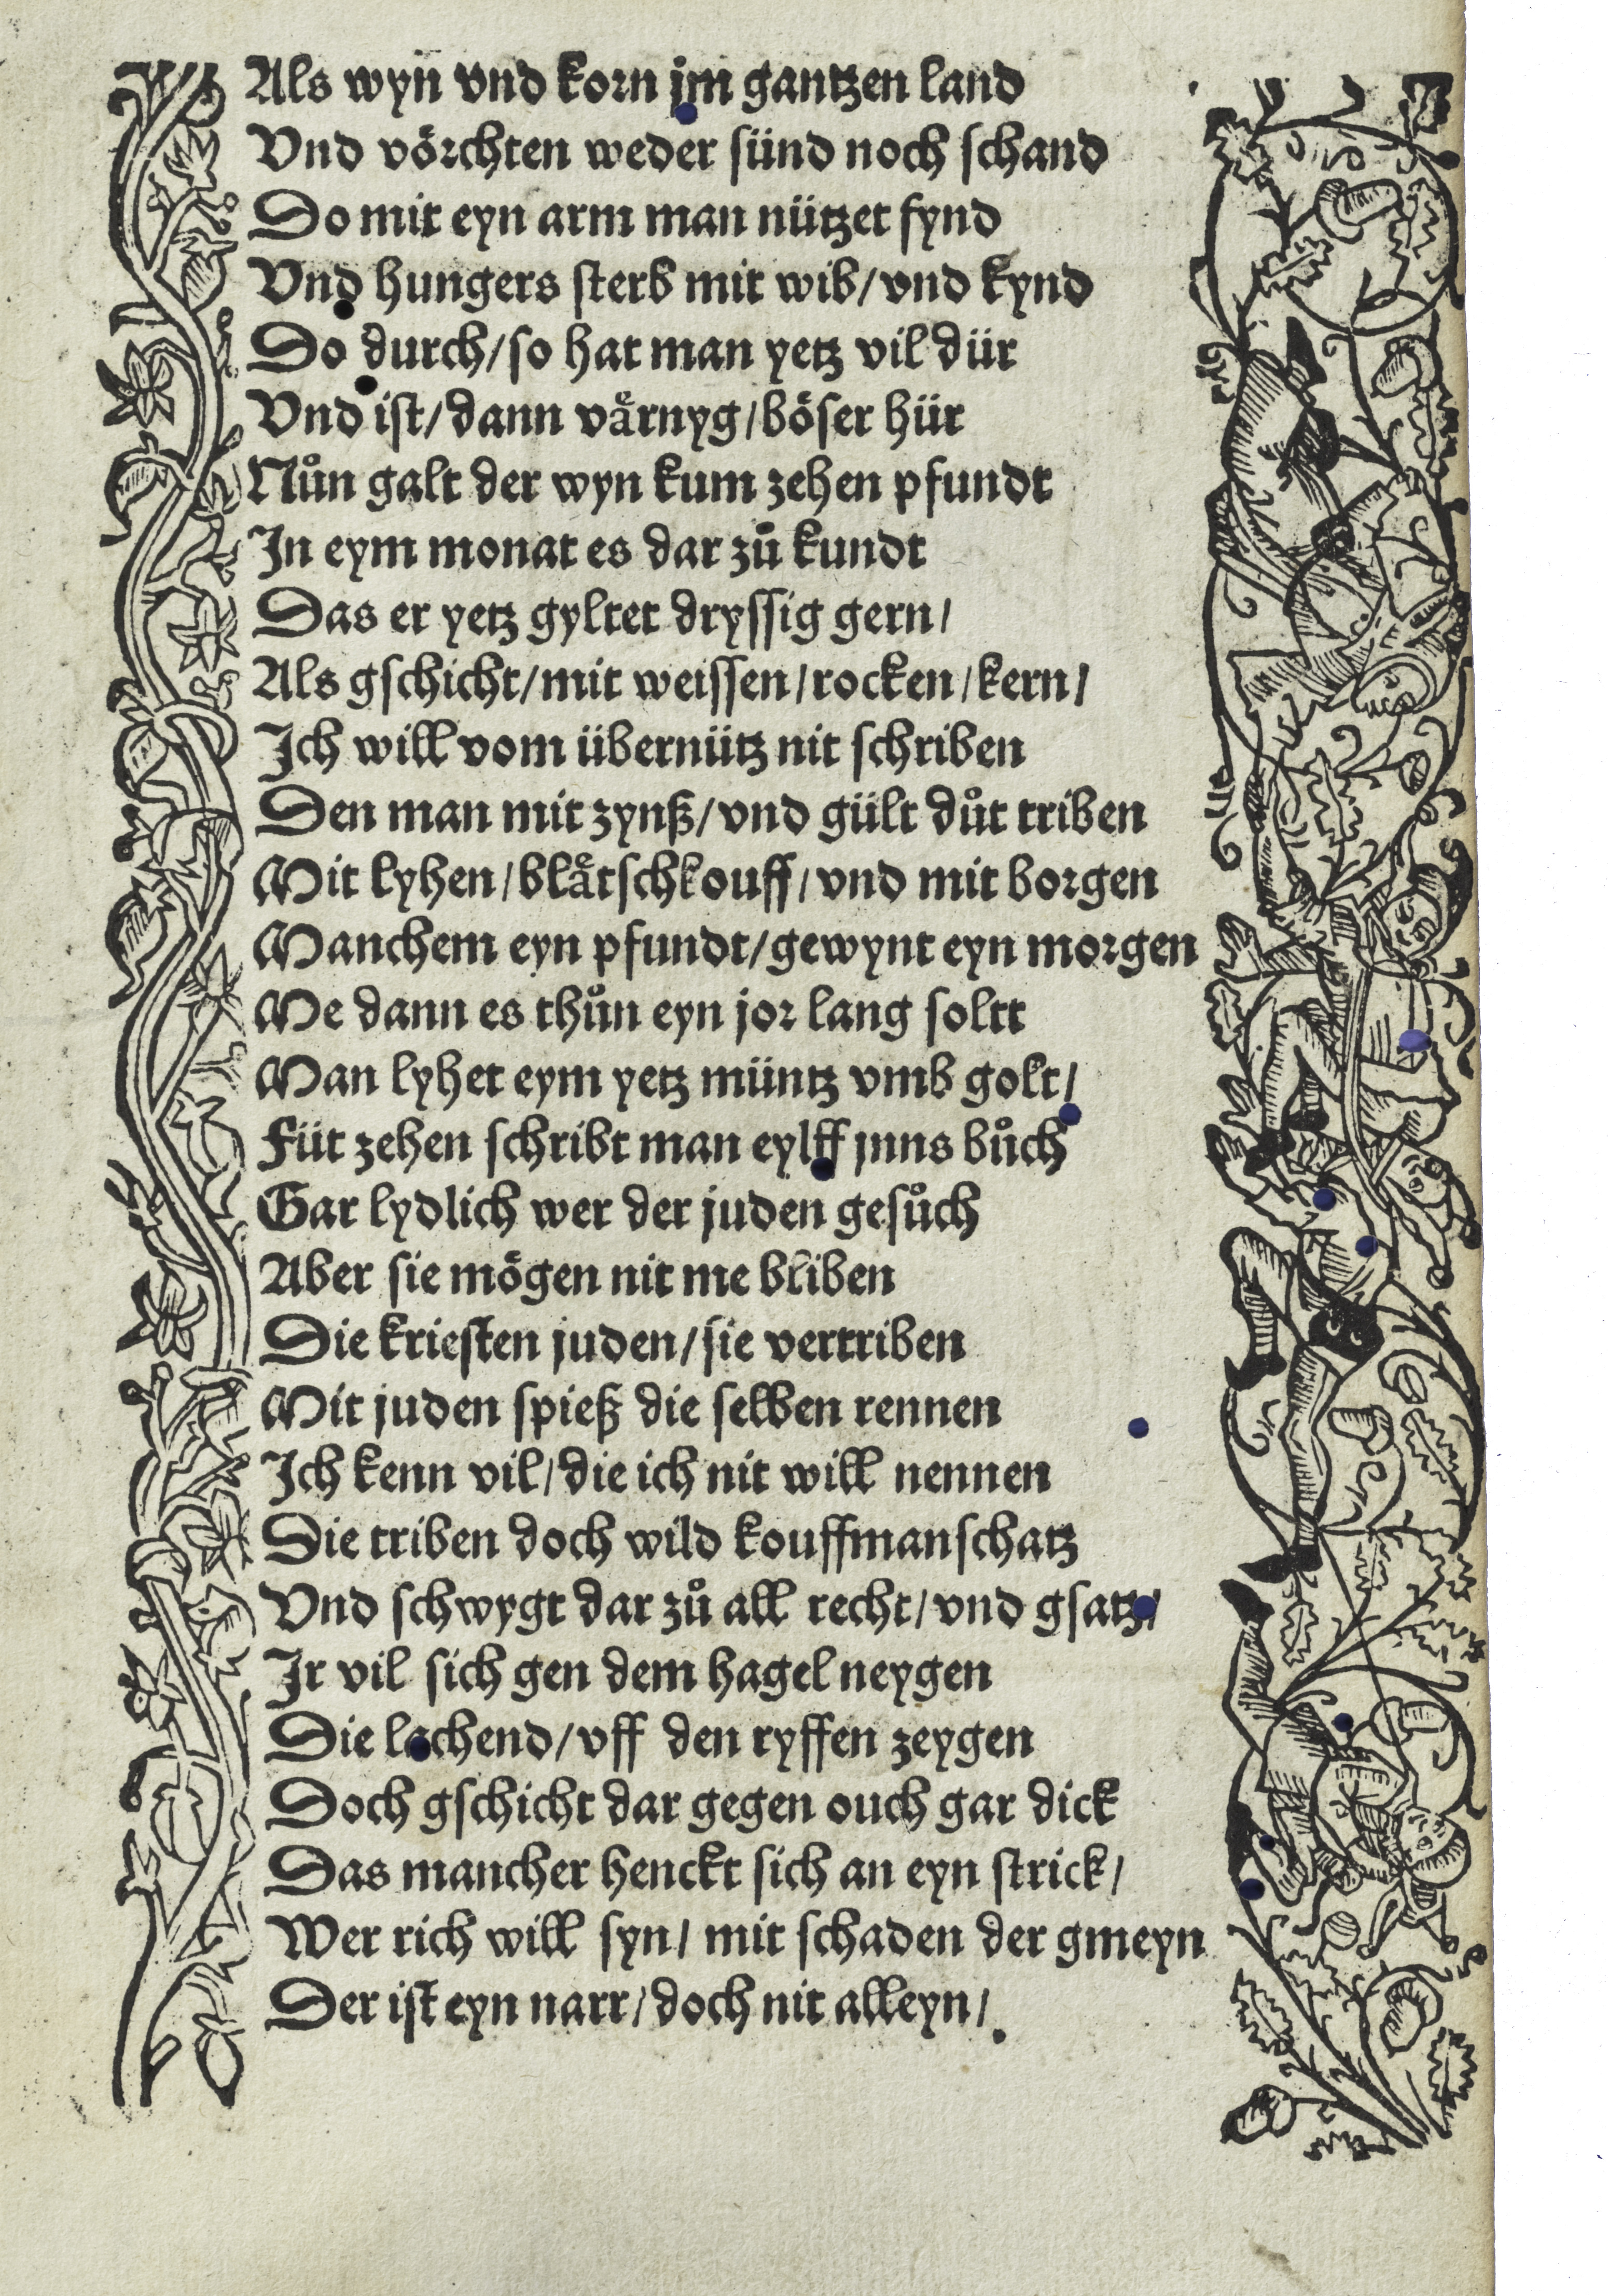 Als wyn vnd korn jm gantzen land
Vnd vörchten weder sünd noch schand
Do mit eyn arm man nützet fynd
Vnd hungers sterb mit wib/vnd kynd
Do durch/so hat man yetz vil dür
Vnd ist/dann vårnyg/böser hür
Nůn galt der wyn kum zehen pfundt
In eym monat es dar zů kundt
Das er yetz gyltet dryssig gern/
Als gschicht/mit weissen/rocken/kern/
Ich will vom übernütz nit schriben
Den man mit zynß/vnd gült důt triben
Mit lyhen/blåtschkouff/vnd mit borgen
Manchem eyn pfundt/gewynt eyn morgen
Me dann es thůn eyn jor lang soltt
Man lyhet eym yetz müntz vmb golt/
Für zehen schribt man eylff jnns bůch
Gar lydlich wer der juden gesůch
Aber sie mögen nit me bliben
Die kristen juden/sie vertriben
Mit juden spieß die selben rennen
Ich kenn vil/die ich nit will nennen
Die triben doch wild kouffmanschatz
Vnd schwygt dar zů all recht/vnd gsatz/
Ir vil sich gen dem hagel neygen
Die lachend/vff den ryffen zeygen
Doch gschicht dar gegen ouch gar dick
Das mancher henckt sich an eyn strick/
Wer rich will syn/mit schaden der gmeyn
Der ist eyn narr/doch nit alleyn/.